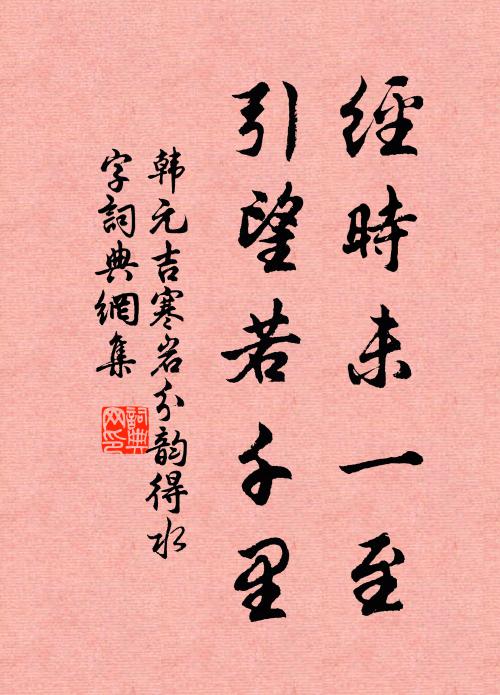 經時未一至
引望若千里
韩元吉寒岩分韵得水
字詞典網集
詞典
网印